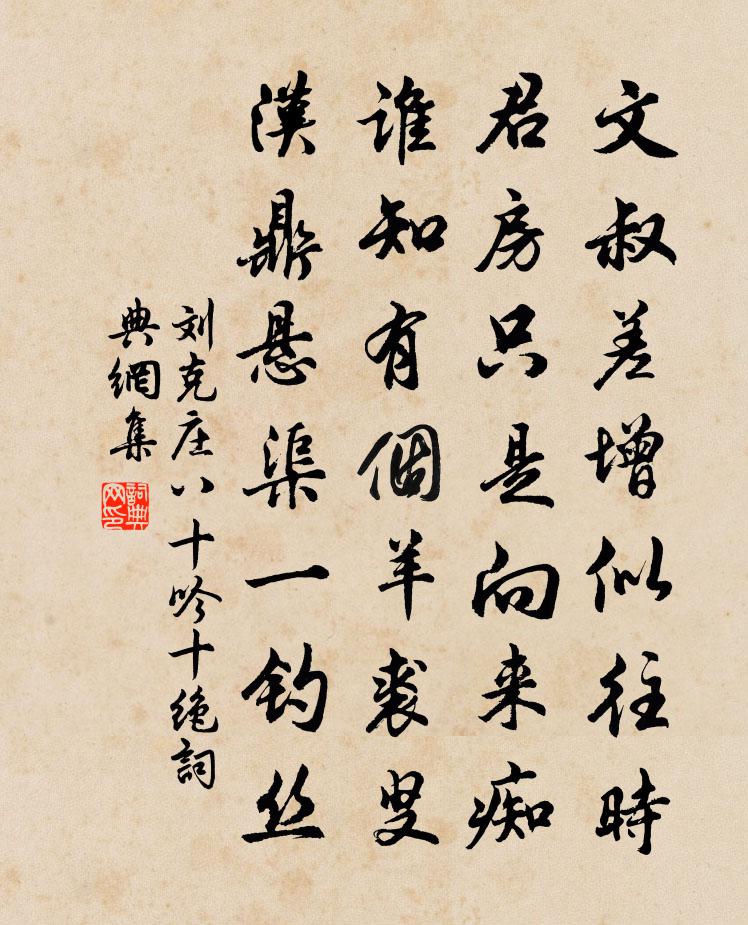 文叔差增似往時
君房只是向来痴
谁知有個羊裘叟
漢鼎悬渠一钓丝
刘克庄八十吟十绝詞
典網集
詞典
网印